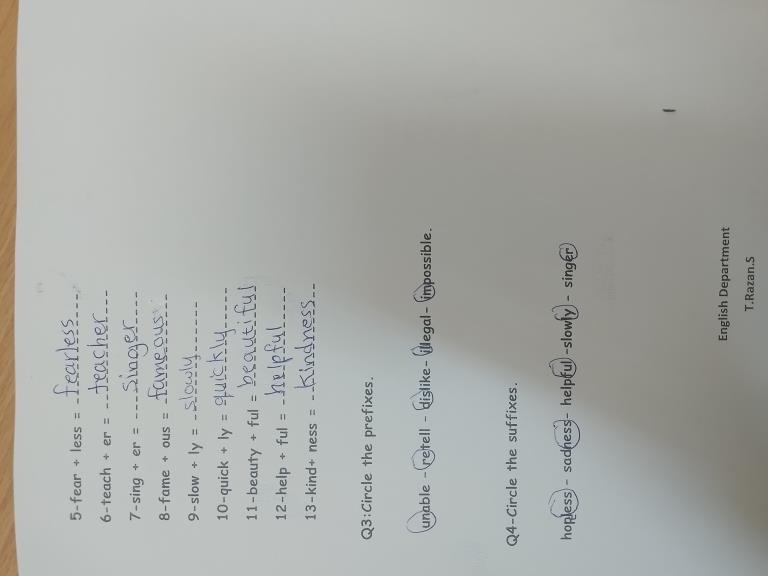 5-fear + less = fearless
6-teach + er = teacher
7-sing + er = singer
8-fame + ous = fameous
9-slow + ly = slowly
10-quick + ly = quickly
11-beauty + ful = beautiful
12-help + ful = helpful
13-kind+ ness = kindness
Q3:Circle the prefixes.
unable - retell - dislike- illegal- impossible.
Q4-Circle the suffixes.
hopless - sadness- helpful -slowly - singer
English Department
T.Razan.S